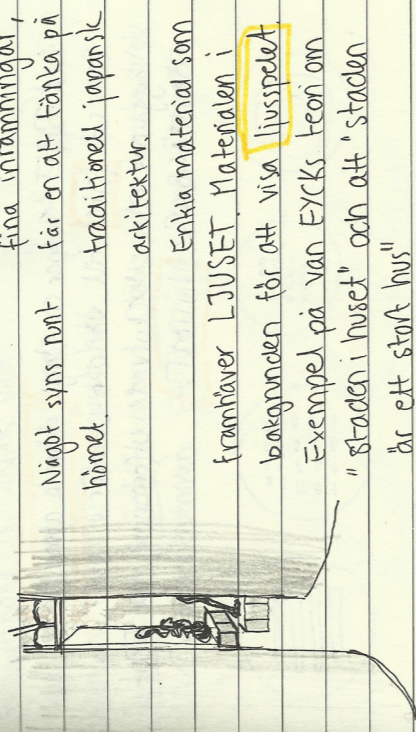 fina inramningar,
får en att tänka på
traditionell japansk
arkitektur.
Något syns runt
hörnet.
Enkla material som
framhäver LJUSET. Materialen i
bakgrunden för att visa ljusspelet.
Exempel på van EYCKs teori om
"staden i huset" och att "staden
är ett stort hus"